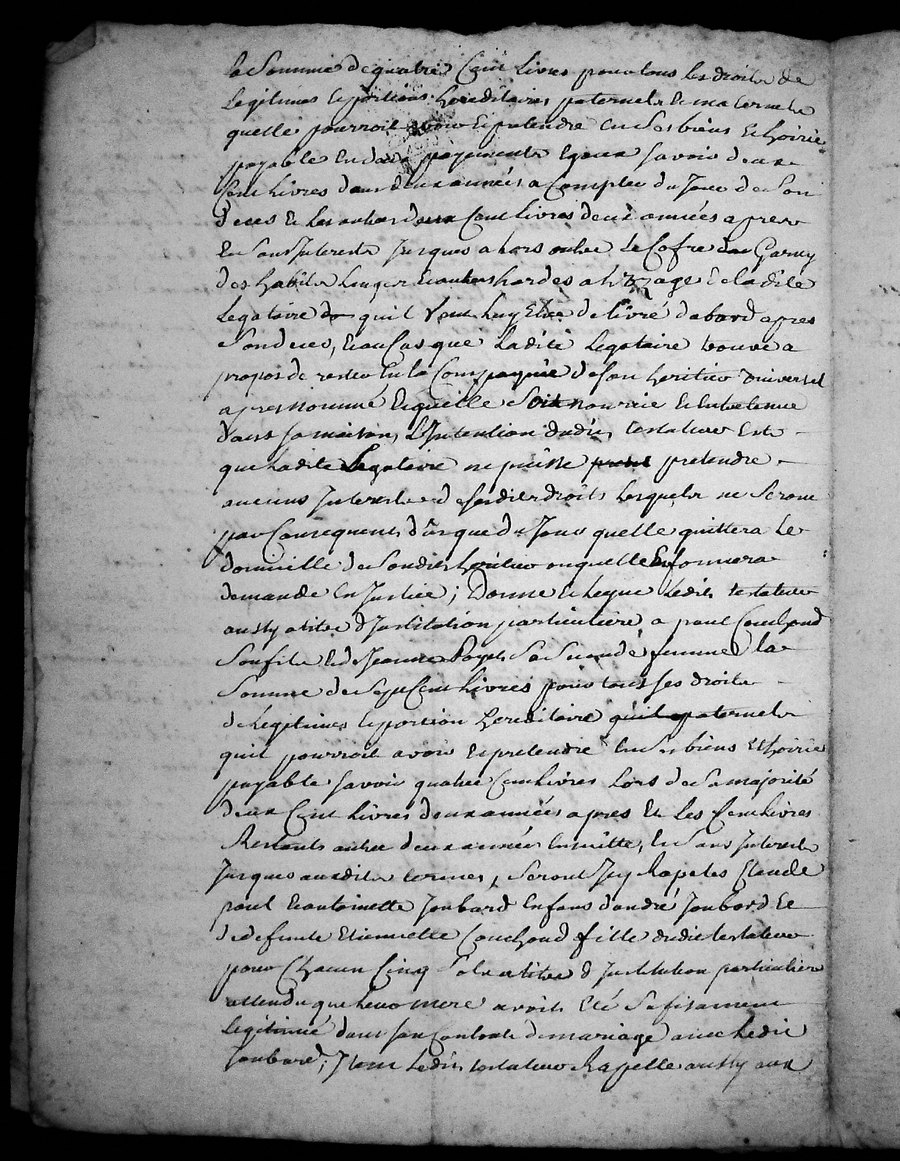 la Somme de quatre Cent Livres pour tous les droits de
Legitimes et portions hereditaires paternels et maternels
quelle pourroit avoir et pretendre en Ses biens et hoirie
payable en deux payements Egaux Savoir deux
Cent Livres dans deux années a Compter du Jour de Son
deces et les autres deux Cent Livres deux années apres
et Sans Interets Jusques alhors outre le Cofre Garny
des habits linge et autres hardes a L'uzage de ladite
Legataire quil veut luy Etre delivré dabord apres
Son deces, et au Cas que Ladite Legataire trouve a
propos de rester En la Compagnie de Son heritier Universel
apres nommé et quelle Soit nourrie et Entretenue
dans Sa maison, L'Intention dudit testateur Est
que Ladite Legataire ne puisse pretendre
aucuns Interets de Sesdits droits lesquels ne Seront
par Consequent dus que du Jour quelle quittera le
domicille de Sondit heritier ou quelle En formera
demande En Justice; Donne et Legue Ledit testateur
aussy a titre d'Institution particuliere a paul Couchoud
Son fils et de Jeanne Payet Sa Seconde femme la
Somme de Sept Cent Livres pour tous Ses droits
de Legitimes et portion hereditaire
quil pourroit avoir et pretendre En Ses biens et hoirie
payable Savoir quatre Cent Livres Lors de Sa majorité
deux Cent Livres deux années apres et Les Cent Livres
Restants autres deux années Ensuitte, et Sans Interets
Jusques auxdits termes, Seront Icy Rapelés Claude
paul et antoinette Joubard Enfans d'andré Joubard et
de defunte Etiennette Couchoud fille dudit testateur
pour Chacun Cinq Sols a titre d'Institution particuliere
attendu que leur mere avoit Eté Sufisament
Legitimée dans Son Contrat de mariage avec Ledit
Joubard; Item Ledit testateur Rapelle aussy aux